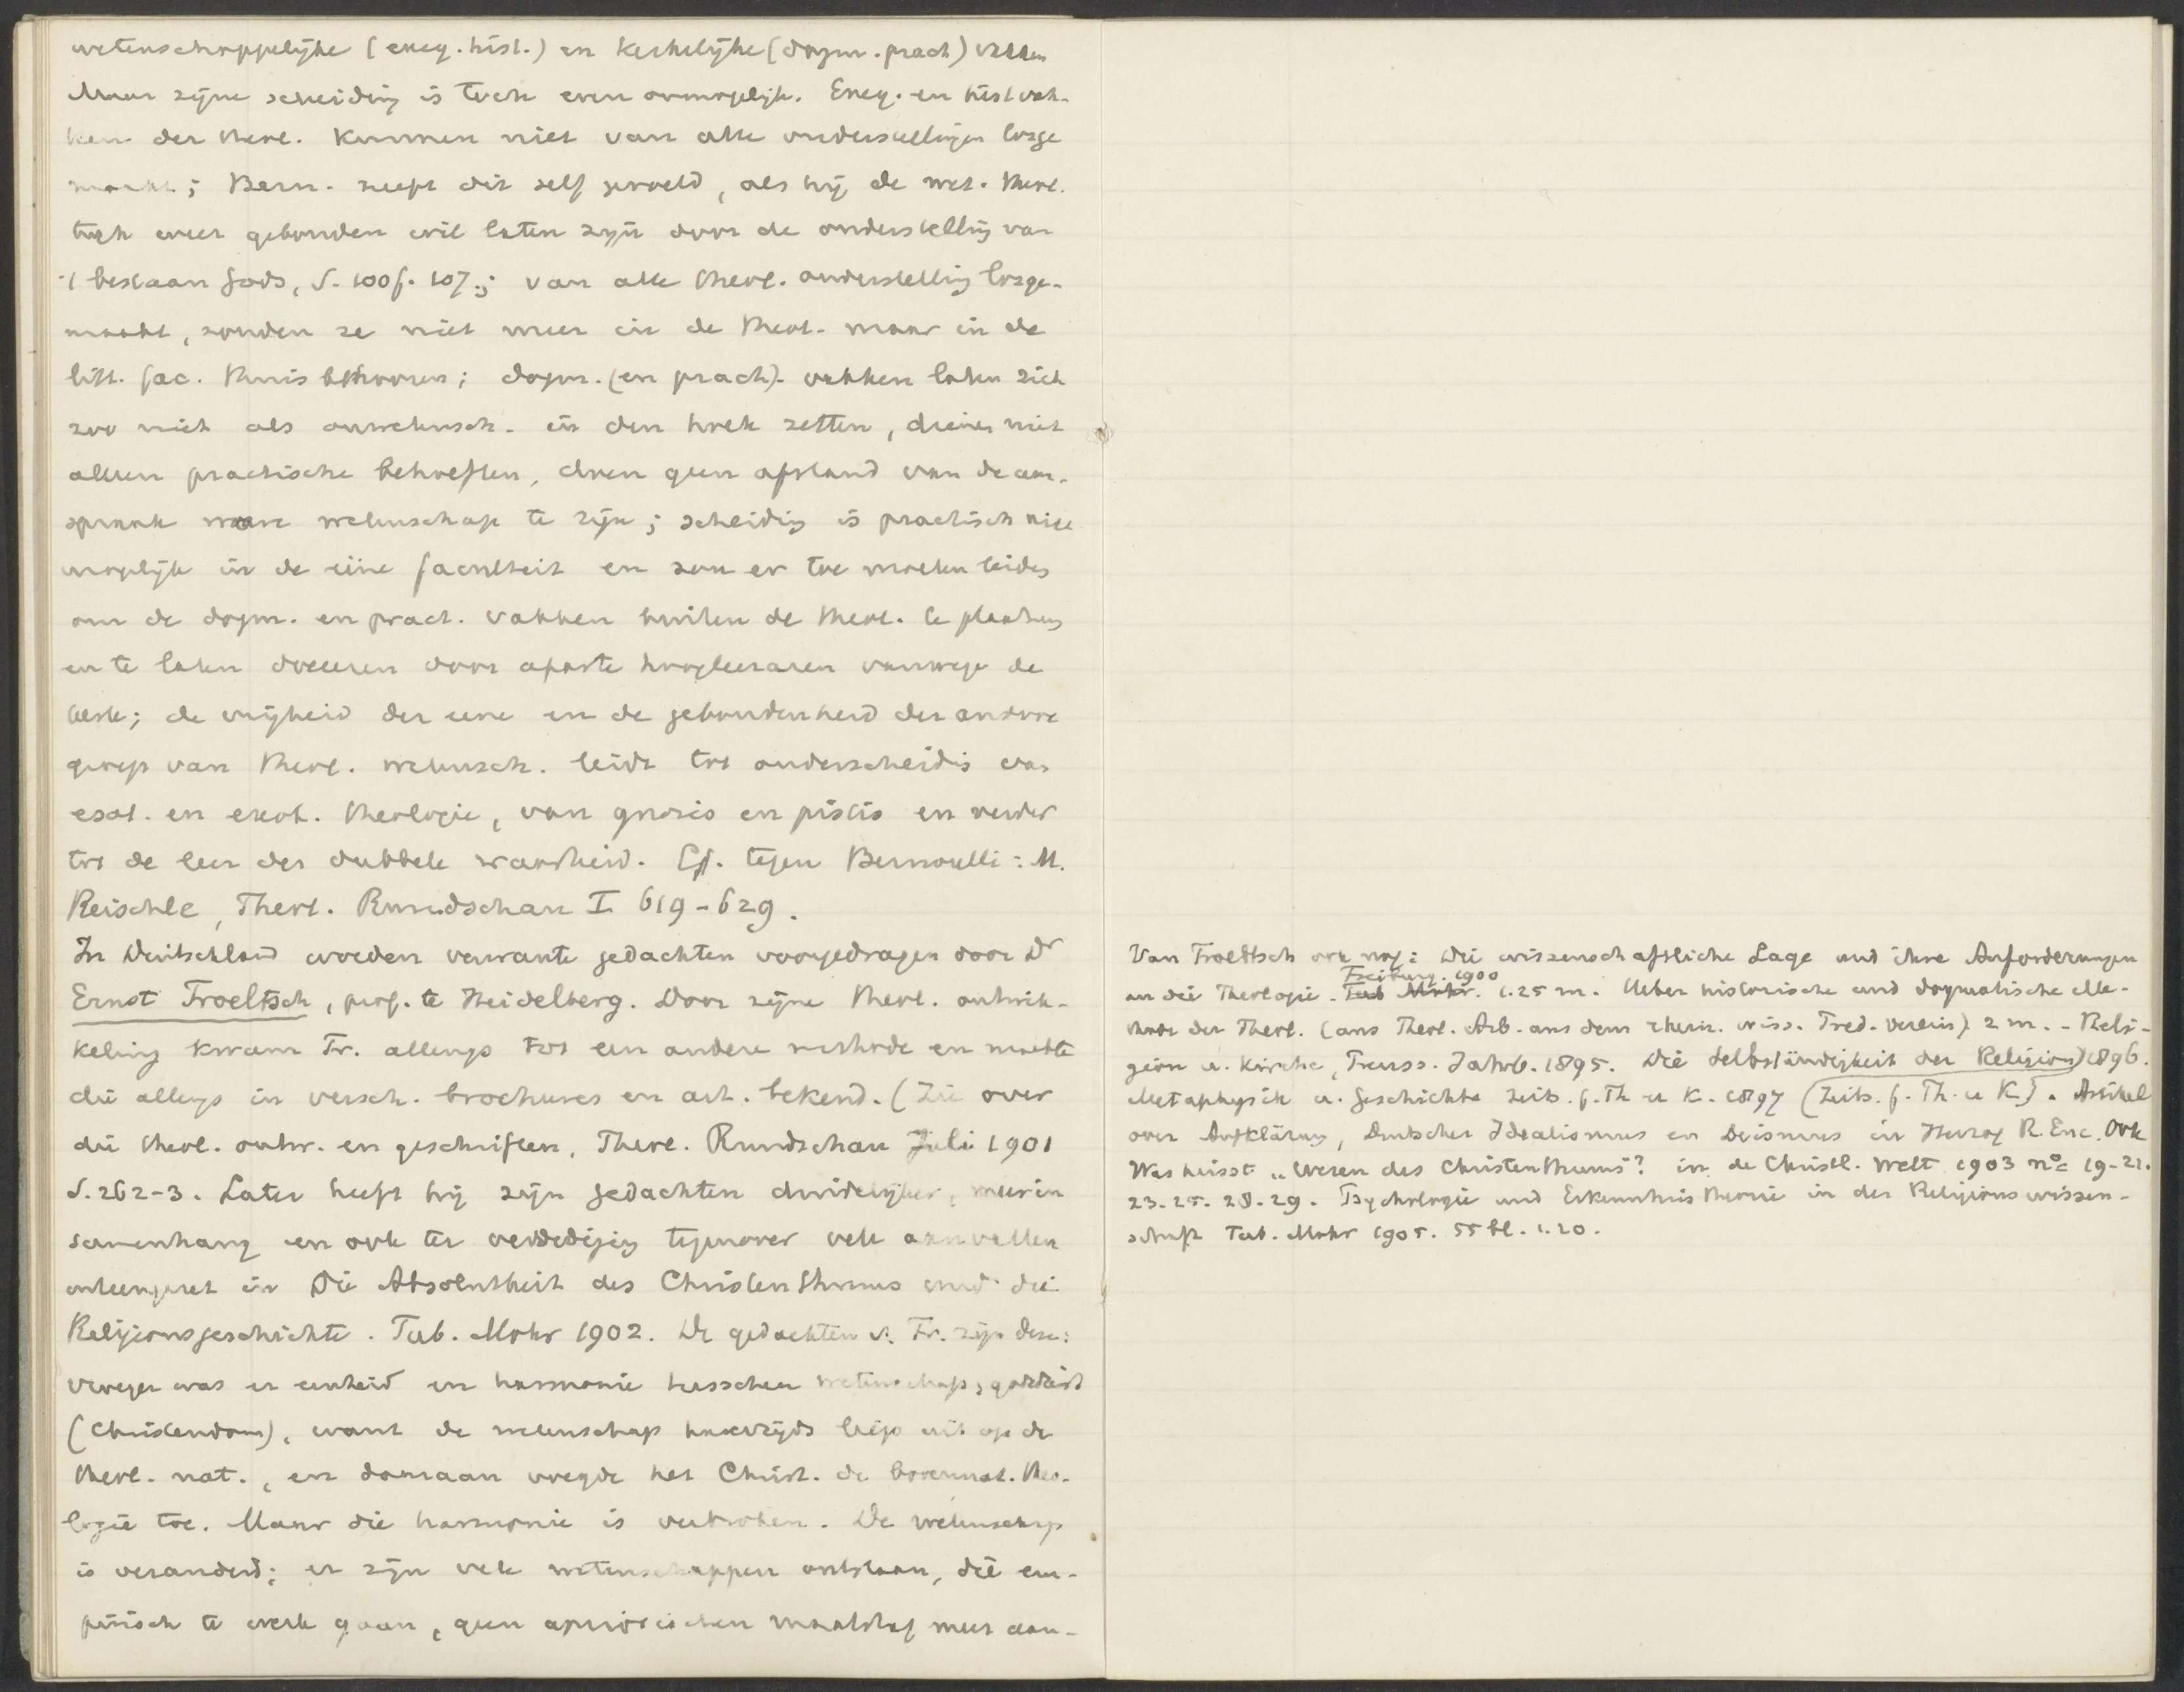 wetenschappelijke (exeg. hist.) en kerkelijke (dogm. pract) vakken
Maar zijne scheiding is toch even onmogelijk. Exeg. en hist vak-
ken der theol. kunnen niet van alle onderstellingen losge
maakt; Bern. heeft dit zelf gevoeld, als hij de wet. theol.
toch weer gebonden wil laten zijn door de onderstelling van
't bestaan Gods, S. 100f. 107.; van alle theol. onderstelling losge-
maakt, zouden ze niet meer in de theol. maar in de
litt. fac. thuis behooren; dogm. (en pract). vakken laten zich
zoo niet als onwetensch. in den hoek zetten, dienen niet
alleen practische behoeften, doen geen afstand van de aan-
spraak ware wetenschap te zijn; scheiding is practisch niet
mogelijk in de eene faculteit en zou er toe moeten leiden
om de dogm. en pract. vakken buiten de theol. te plaatsen
en te laten doceeren door aparte hoogleeraren vanwege de
kerk; de vrijheid der eene en de gebondenheid der andere
groep van theol. wetensch. leidt tot onderscheiding van
esot. en exot. theologie, van gnosis en pistis en verder
tot de leer der dubbele waarheid. Cf. tegen Bernoulli: M.
Reischle, Theol. Rundschau I 619-629.
In Duitschland worden verwante gedachten voorgedragen door Dr
Ernst Troeltsch, prof. te Heidelberg. Door zijne theol. ontwik-
keling kwam Tr. allengs tot een andere methode en maakte
die allengs in versch. brochures en art. bekend. (Zie over
die theol. ontw. en geschriften, Theol. Rundschau Juli 1901
S. 262-3. Later heeft hij zijn gedachten duidelijker, meer in
samenhang en ook ter verdediging tegenover vele aanvallen
uiteengezet in Die Absolutheit des Christenthums und die
Religionsgeschichte. Tub. Mohr 1902. De gedachten v. Tr. zijn deze:
vroeger was er eenheid en harmonie tusschen wetenschap, godsdienst
(Christendom), want de wetenschap destijds liep uit op de
theol. nat., en daaraan voegde het Christ. de bovennat. theo-
logie toe. Maar die harmonie is verbroken. De wetenschap
is veranderd; er zijn vele wetenschappen ontstaan, die em-
pirisch te werk gaan, geen aprioristischen maatstaf meer aan-
Van Troeltsch ook nog: Die wissenschaftliche Lage und ihre Anforderungen
an die Theologie. Tub Mohr. Freiburg. 1900 1.25 m. Ueber historische und dogmatische Me-
thode der Theol. (aus Theol. Arb. aus dem rhein. wiss. Pred. Verein) 2 m. - Reli-
gion u. Kirche, Preuss. Jahrb. 1895. Die Selbständigkeit der Religion 1896.
Metaphysik u. Geschichte Zeits. f. Th u K. 1897 (Zeits. f. Th. u K). Artikel
over Aufklärung, Deutscher Idealismus en Deismus in Herzog R. Enc. Ook
Was heisst „Wesen des Christenthums"? in de Christl. Welt 1903 no 19-21.
23. 25. 28. 29. Psychologie und Erkenntnistheorie in der Religionswissen-
schaft Tub. Mohr 1905. 55 bl. 1.20.